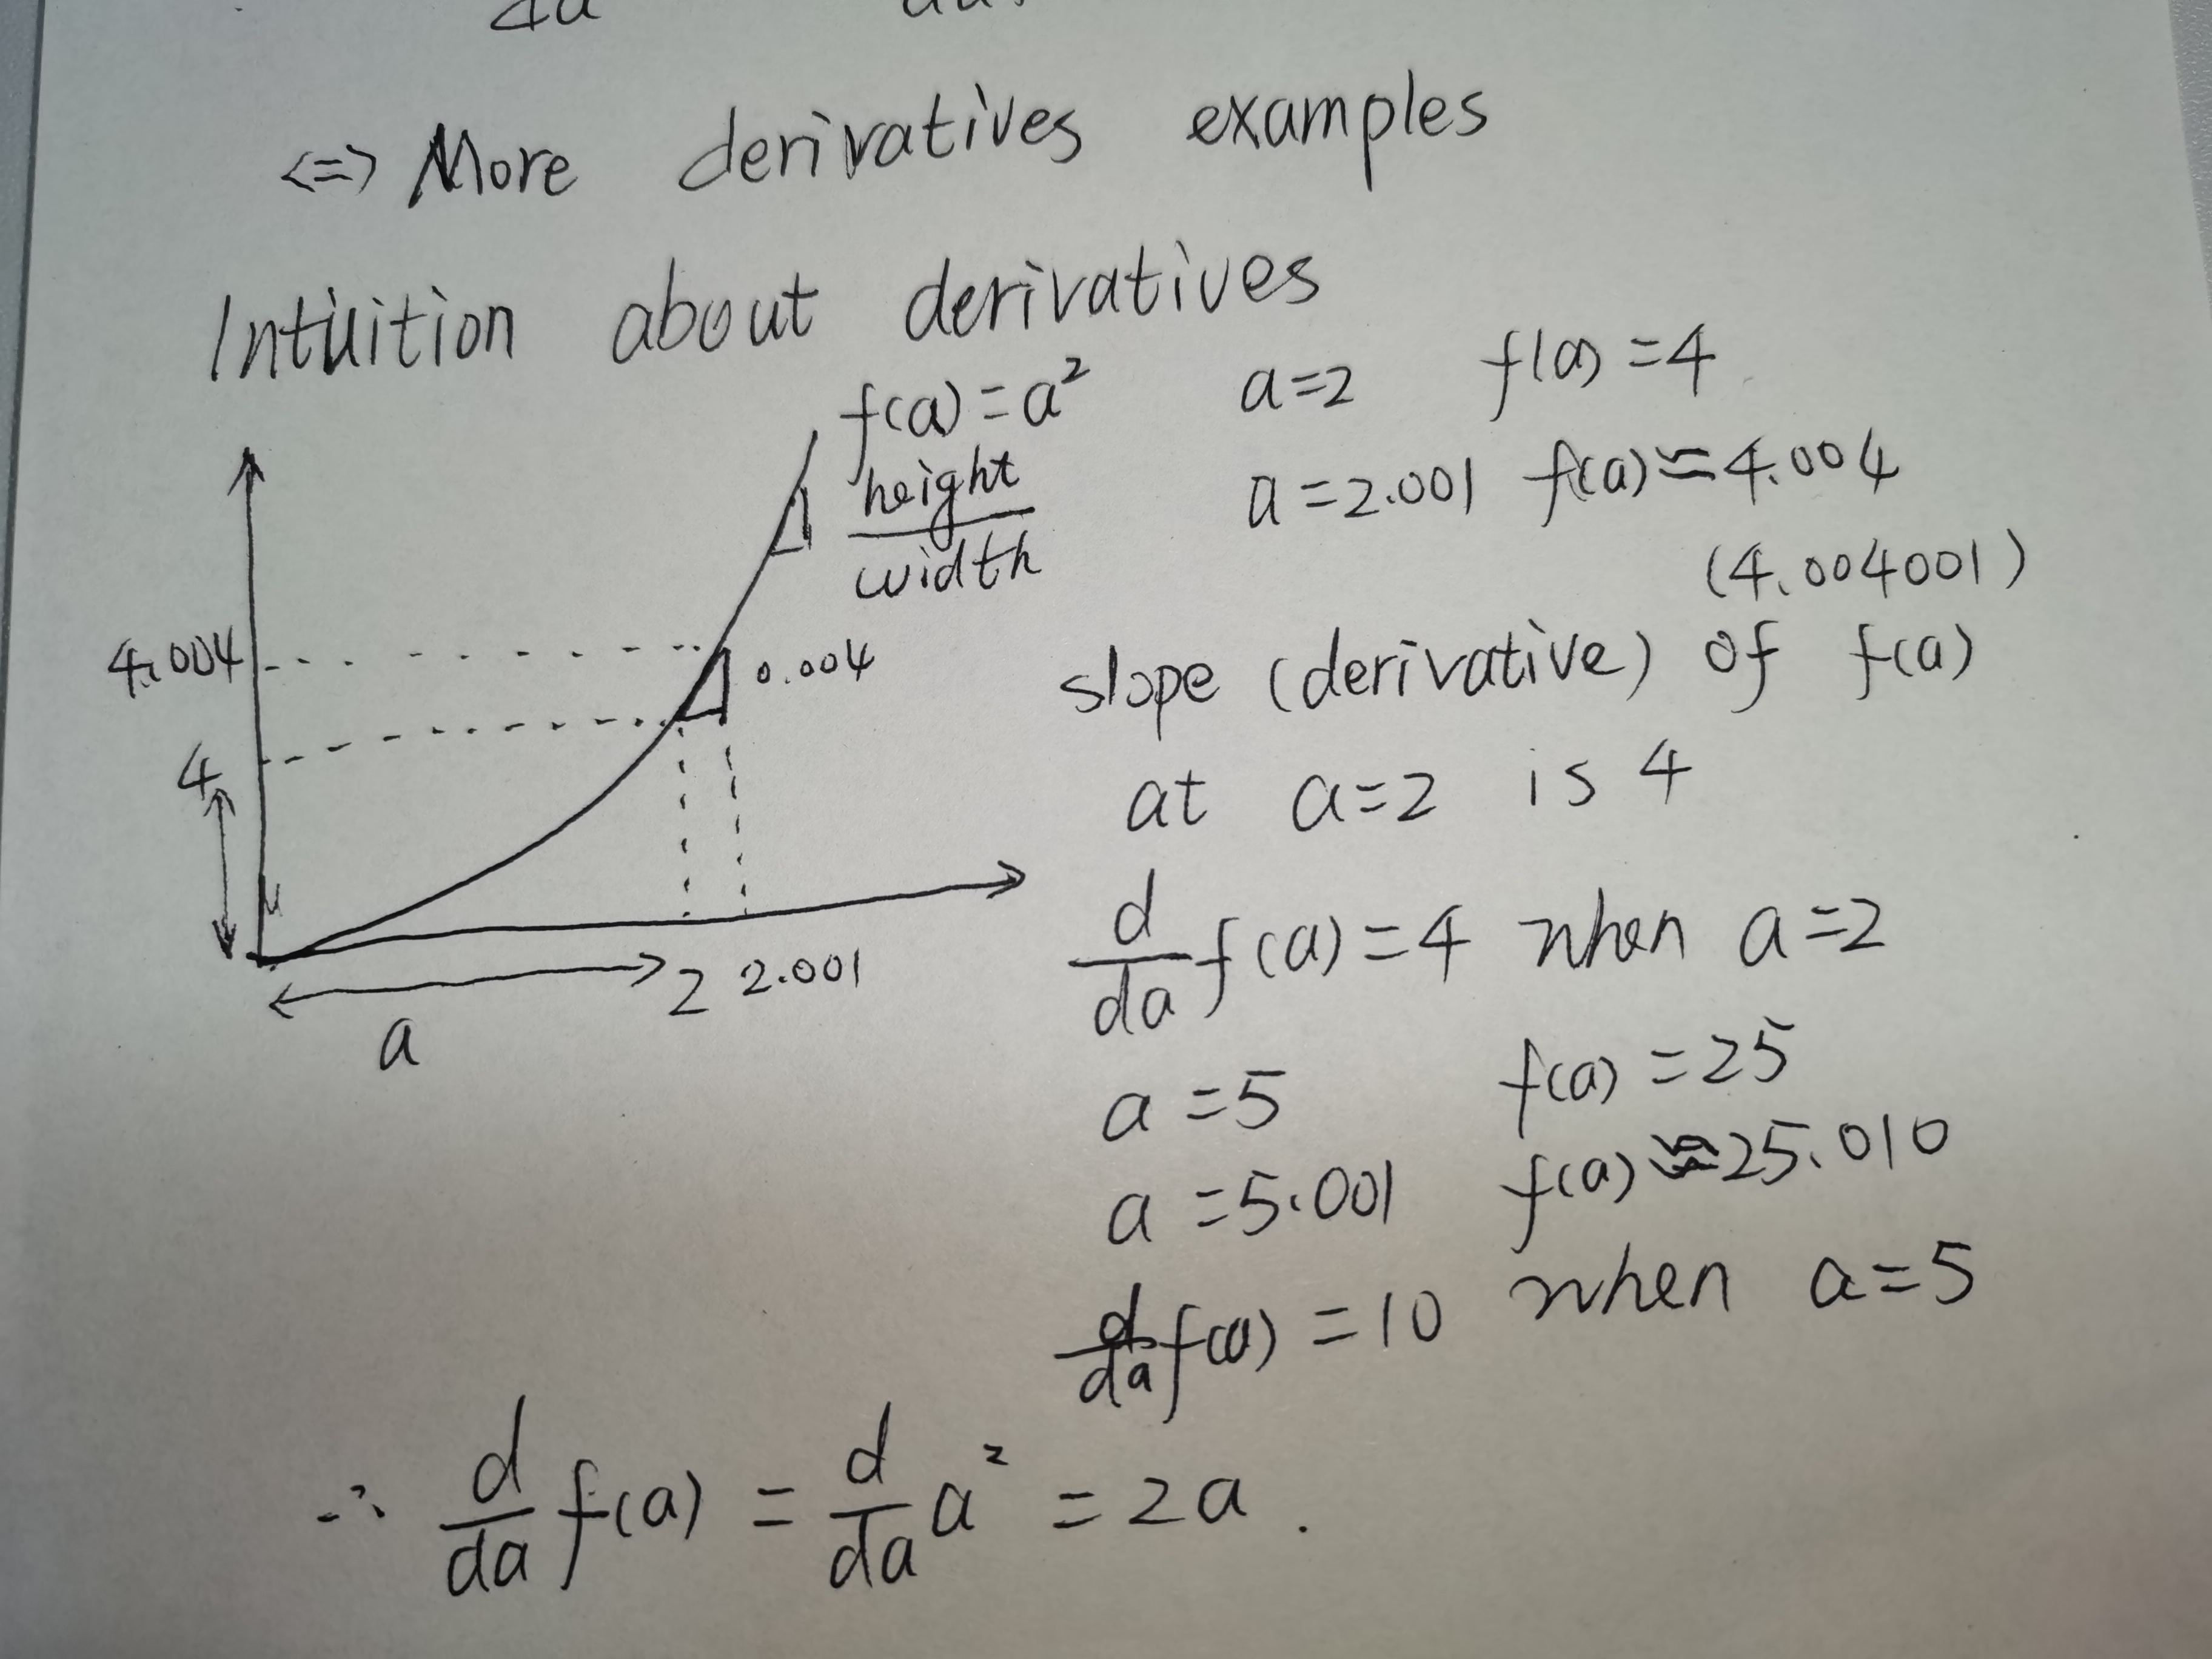 <=> More derivatives examples
Intiuition about derivatives
f(a) = a²
height
width
4.004
0.004
4
2 2.001
a
a=2 f(a) =4
a=2.001 f(a)≈4.004
(4.004001)
slope (derivative) of f(a)
at a=2 is 4
d/da f(a) = 4 when a=2
a=5 f(a) =25
a=5.001 f(a) ≈25.010
d/da f(a) = 10 when a=5
∴ d/da f(a) = d/da a² = 2a.